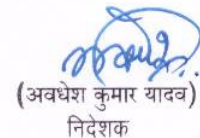 (अवधेश कुमार यादव)
निदेशक